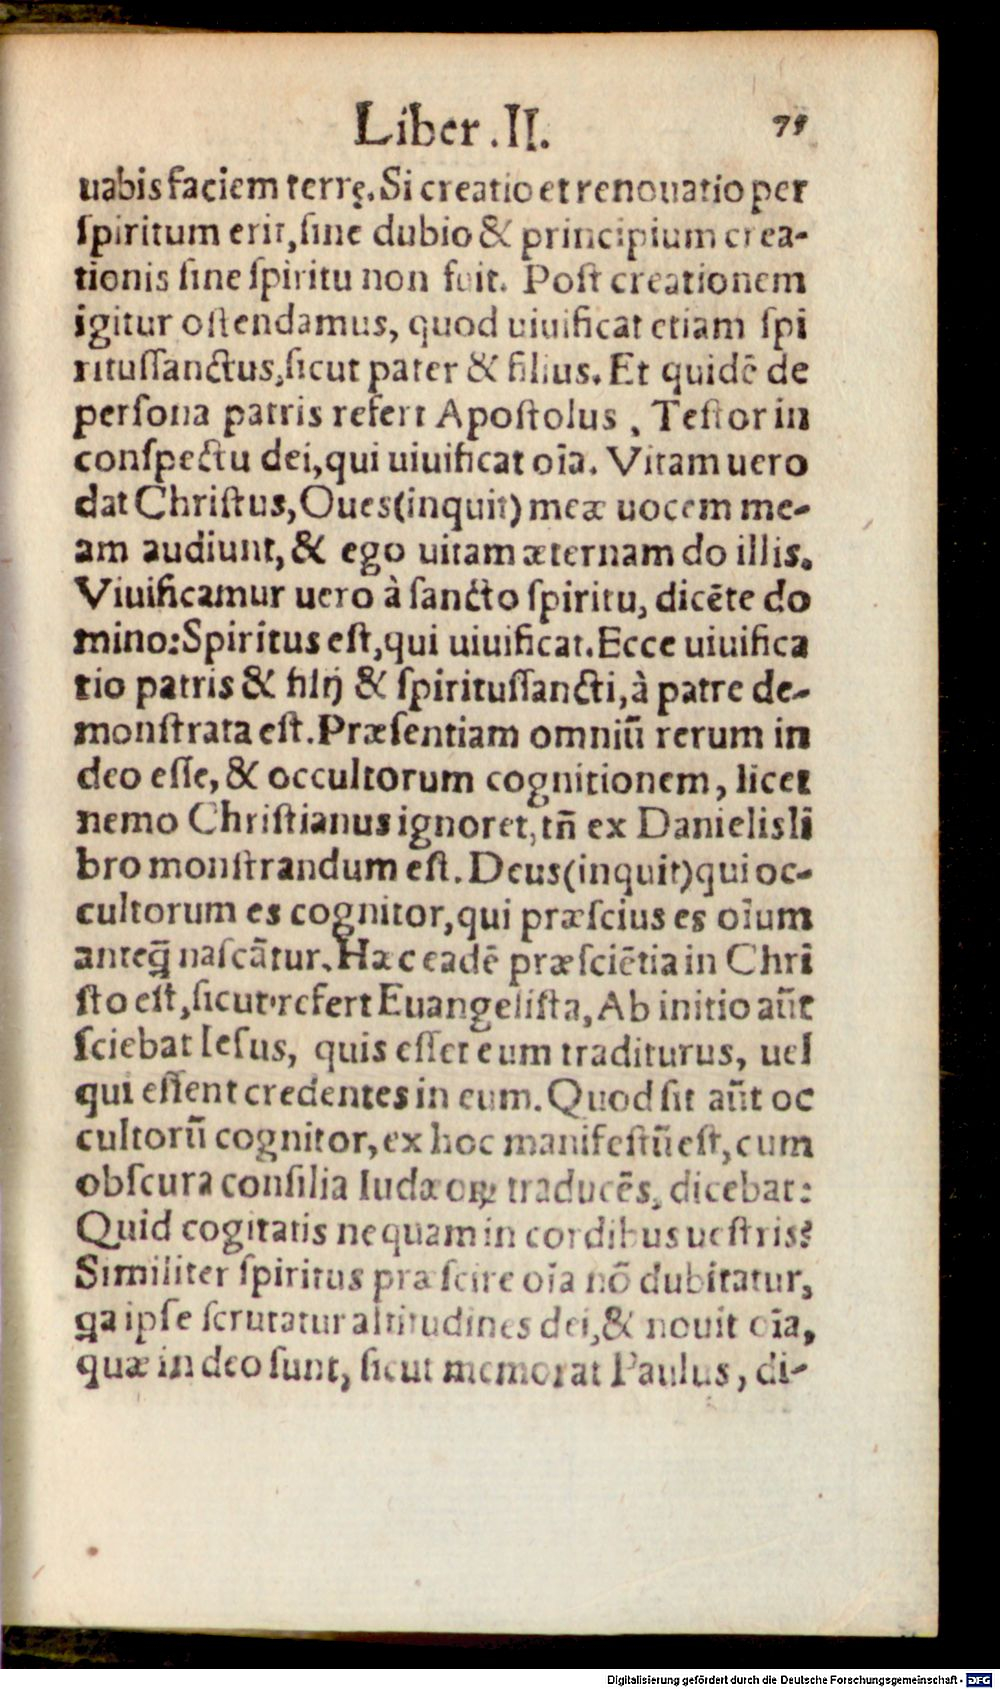 Liber .II. 75
uabis faciem terrę. Si creatio et renouatio per
ſpiritum erit, ſine dubio & principium crea-
tionis ſine ſpiritu non fuit. Poſt creationem
igitur oſtendamus, quod uiuificat etiam ſpi
rituſſanctus, ſicut pater & filius. Et quidē de
perſona patris refert Apoſtolus, Teſtor in
conſpectu dei, qui uiuificat oīa. Vitam uero
dat Chriſtus, Oues (inquit) meæ uocem me-
am audiunt, & ego uitam æternam do illis.
Viuificamur uero à ſancto ſpiritu, dicēte do
mino: Spiritus eſt, qui uiuificat. Ecce uiuifica
tio patris & filij & ſpirituſſancti, à patre de-
monſtrata eſt. Præſentiam omniū rerum in
deo eſſe, & occultorum cognitionem, licet
nemo Chriſtianus ignoret, tñ ex Danielis li
bro monſtrandum eſt. Deus (inquit) qui oc-
cultorum es cognitor, qui præſcius es oīum
anteq̄ naſcātur. Hæc eadē præſciētia in Chri
ſto eſt, ſicut refert Euangeliſta, Ab initio aūt
ſciebat Ieſus, quis eſſet eum traditurus, uel
qui eſſent credentes in eum. Quod ſit aūt oc
cultorū cognitor, ex hoc manifeſtū eſt, cum
obſcura conſilia Iudæoꝝ traducēs, dicebat:
Quid cogitatis nequam in cordibus ueſtris?
Similiter ſpiritus præſcire oīa nō dubitatur,
q̄a ipſe ſcrutatur altitudines dei, & nouit oīa,
quæ in deo ſunt, ſicut memorat Paulus, di-
Digitalisierung gefördert durch die Deutsche Forschungsgemeinschaft - DFG